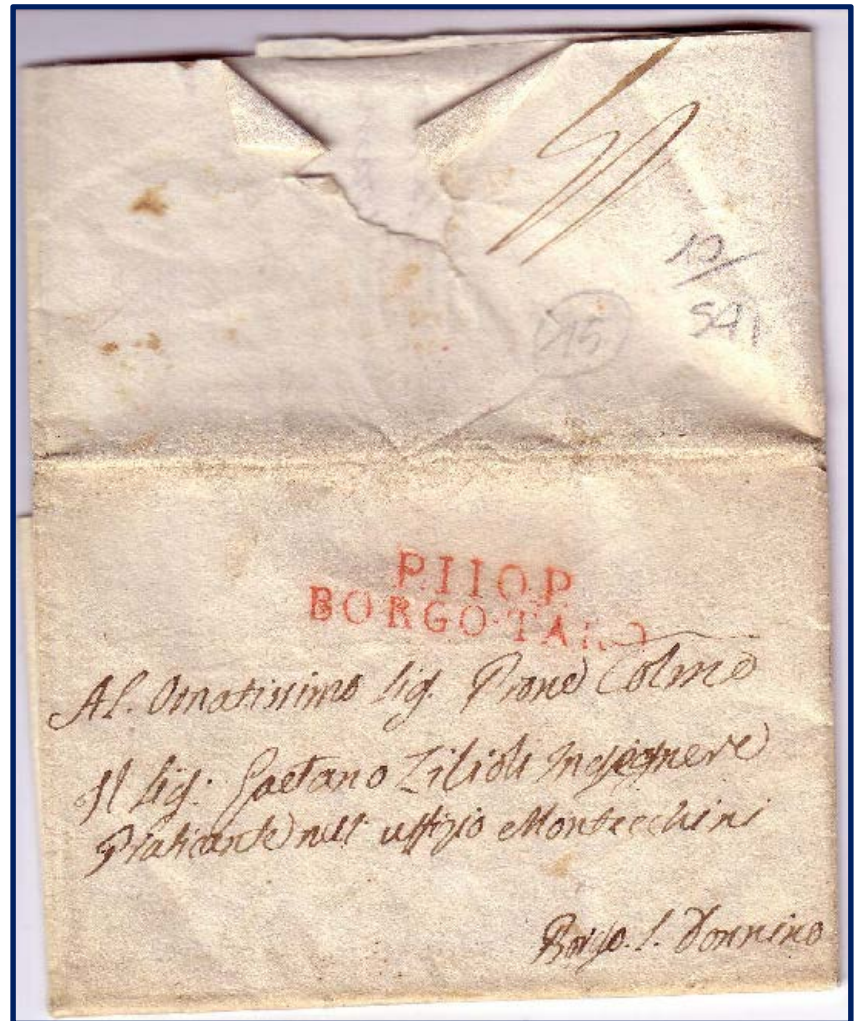 15
P.110.P.
BORGO-TARO
Al. Ornatissimo Sig. Prone Colmo
Il Sig. Gaetano Zilioli Ingegnere
Praticante nell' uffizio Montecchini
Borgo. S. Donnino